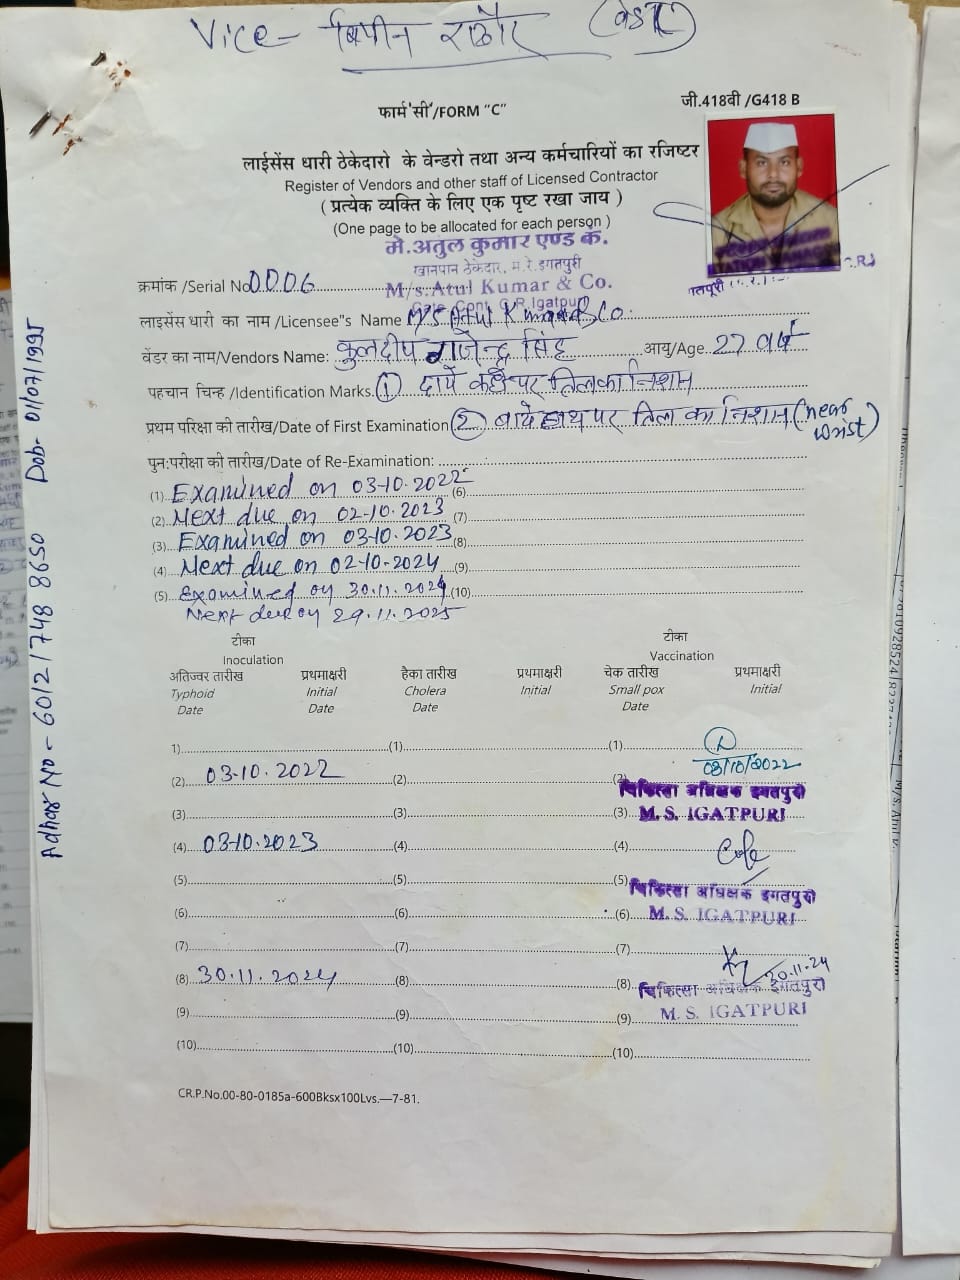 Vice - बिपीन राठौर
फार्म 'सी'/FORM "C"
जी.418बी /G418 B
लाईसेंस धारी ठेकेदारो के वेन्डरो तथा अन्य कर्मचारियों का रजिष्टर
Register of Vendors and other staff of Licensed Contractor
( प्रत्येक व्यक्ति के लिए एक पृष्ट रखा जाय )
(One page to be allocated for each person )
मे.अतुल कुमार एण्ड कं.
खानपान ठेकेदार, म.रे.इगतपुरी
M/s.Atul Kumar & Co.
Cont. C.R.Igatpuri
क्रमांक /Serial No 0006
लाइसेंस धारी का नाम /Licensee"s Name M/S Atul Kumar & Co.
वेंडर का नाम/Vendors Name: कुलदीप राजेन्द्र सिंह आयु/Age 27 वर्ष
पहचान चिन्ह /Identification Marks. (1) दाये कंधे पर तिल का निशान
प्रथम परिक्षा की तारीख/Date of First Examination (2) बाये हाथ पर तिल का निशान (near wrist)
पुन:परीक्षा की तारीख/Date of Re-Examination:
(1) Examined on 03-10.2022 (6)
(2) Next due on 02-10.2023 (7)
(3) Examined on 03-10.2023 (8)
(4) Next due on 02-10-2024 (9)
(5) Examined on 30.11.2024 (10)
Next due on 29.11.2025
टीका टीका
Inoculation Vaccination
अतिज्वर तारीख प्रथमाक्षरी हैका तारीख प्रथमाक्षरी चेक तारीख प्रथमाक्षरी
Typhoid Initial Cholera Initial Small pox Initial
Date Date Date Date
1) (1) (1)
03/10/2022
(2) 03-10.2022 (2) (2)
चिकित्सा अधिक्षक इगतपुरी
(3) (3) (3) M. S. IGATPURI
(4) 03-10.2023 (4) (4)
(5) (5) (5) चिकित्सा अधिक्षक इगतपुरी
(6) (6) (6) M. S. IGATPURI
(7) (7) (7)
30.11.24
(8) 30.11.2024 (8) (8) चिकित्सा अधिक्षक इगतपुरी
(9) (9) (9) M. S. IGATPURI
(10) (10) (10)
CR.P.No.00-80-0185a-600Bksx100Lvs.—7-81.
Adhar No - 6012 1748 8650 Dob- 01/07/1995